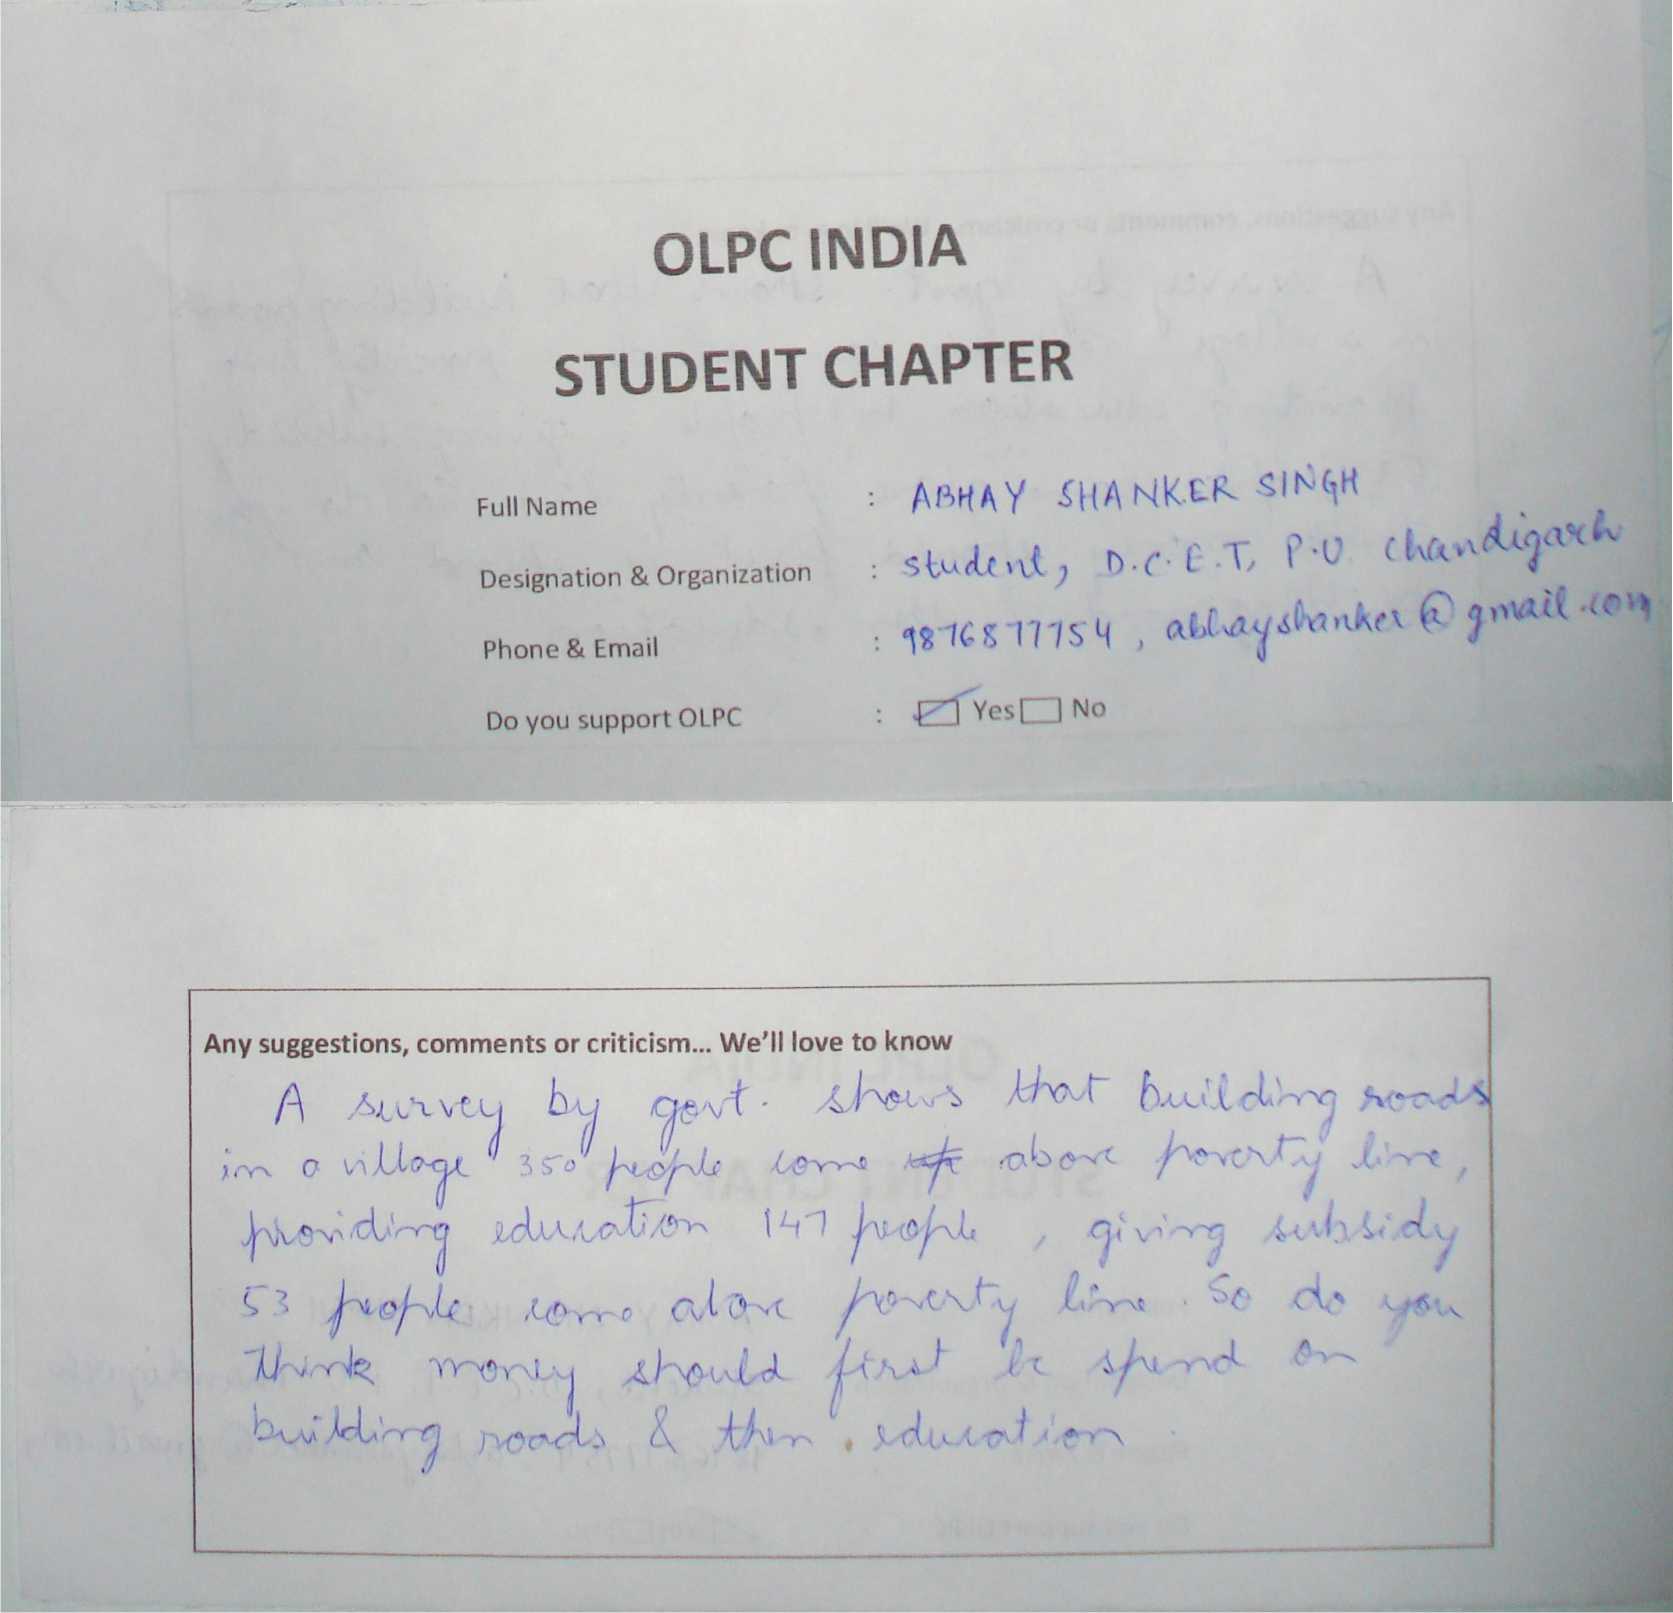 OLPC INDIA
STUDENT CHAPTER
Full Name : ABHAY SHANKER SINGH
Designation & Organization : student, D.C.E.T, P.U. Chandigarh
Phone & Email : 9876877754, abhayshanker@gmail.com
Do you support OLPC : Yes No
Any suggestions, comments or criticism... We'll love to know
A survey by govt. shows that building roads
in a village 350 people come above poverty line,
providing education 147 people, giving subsidy
53 people come above poverty line. So do you
think money should first be spend on
building roads & then education.